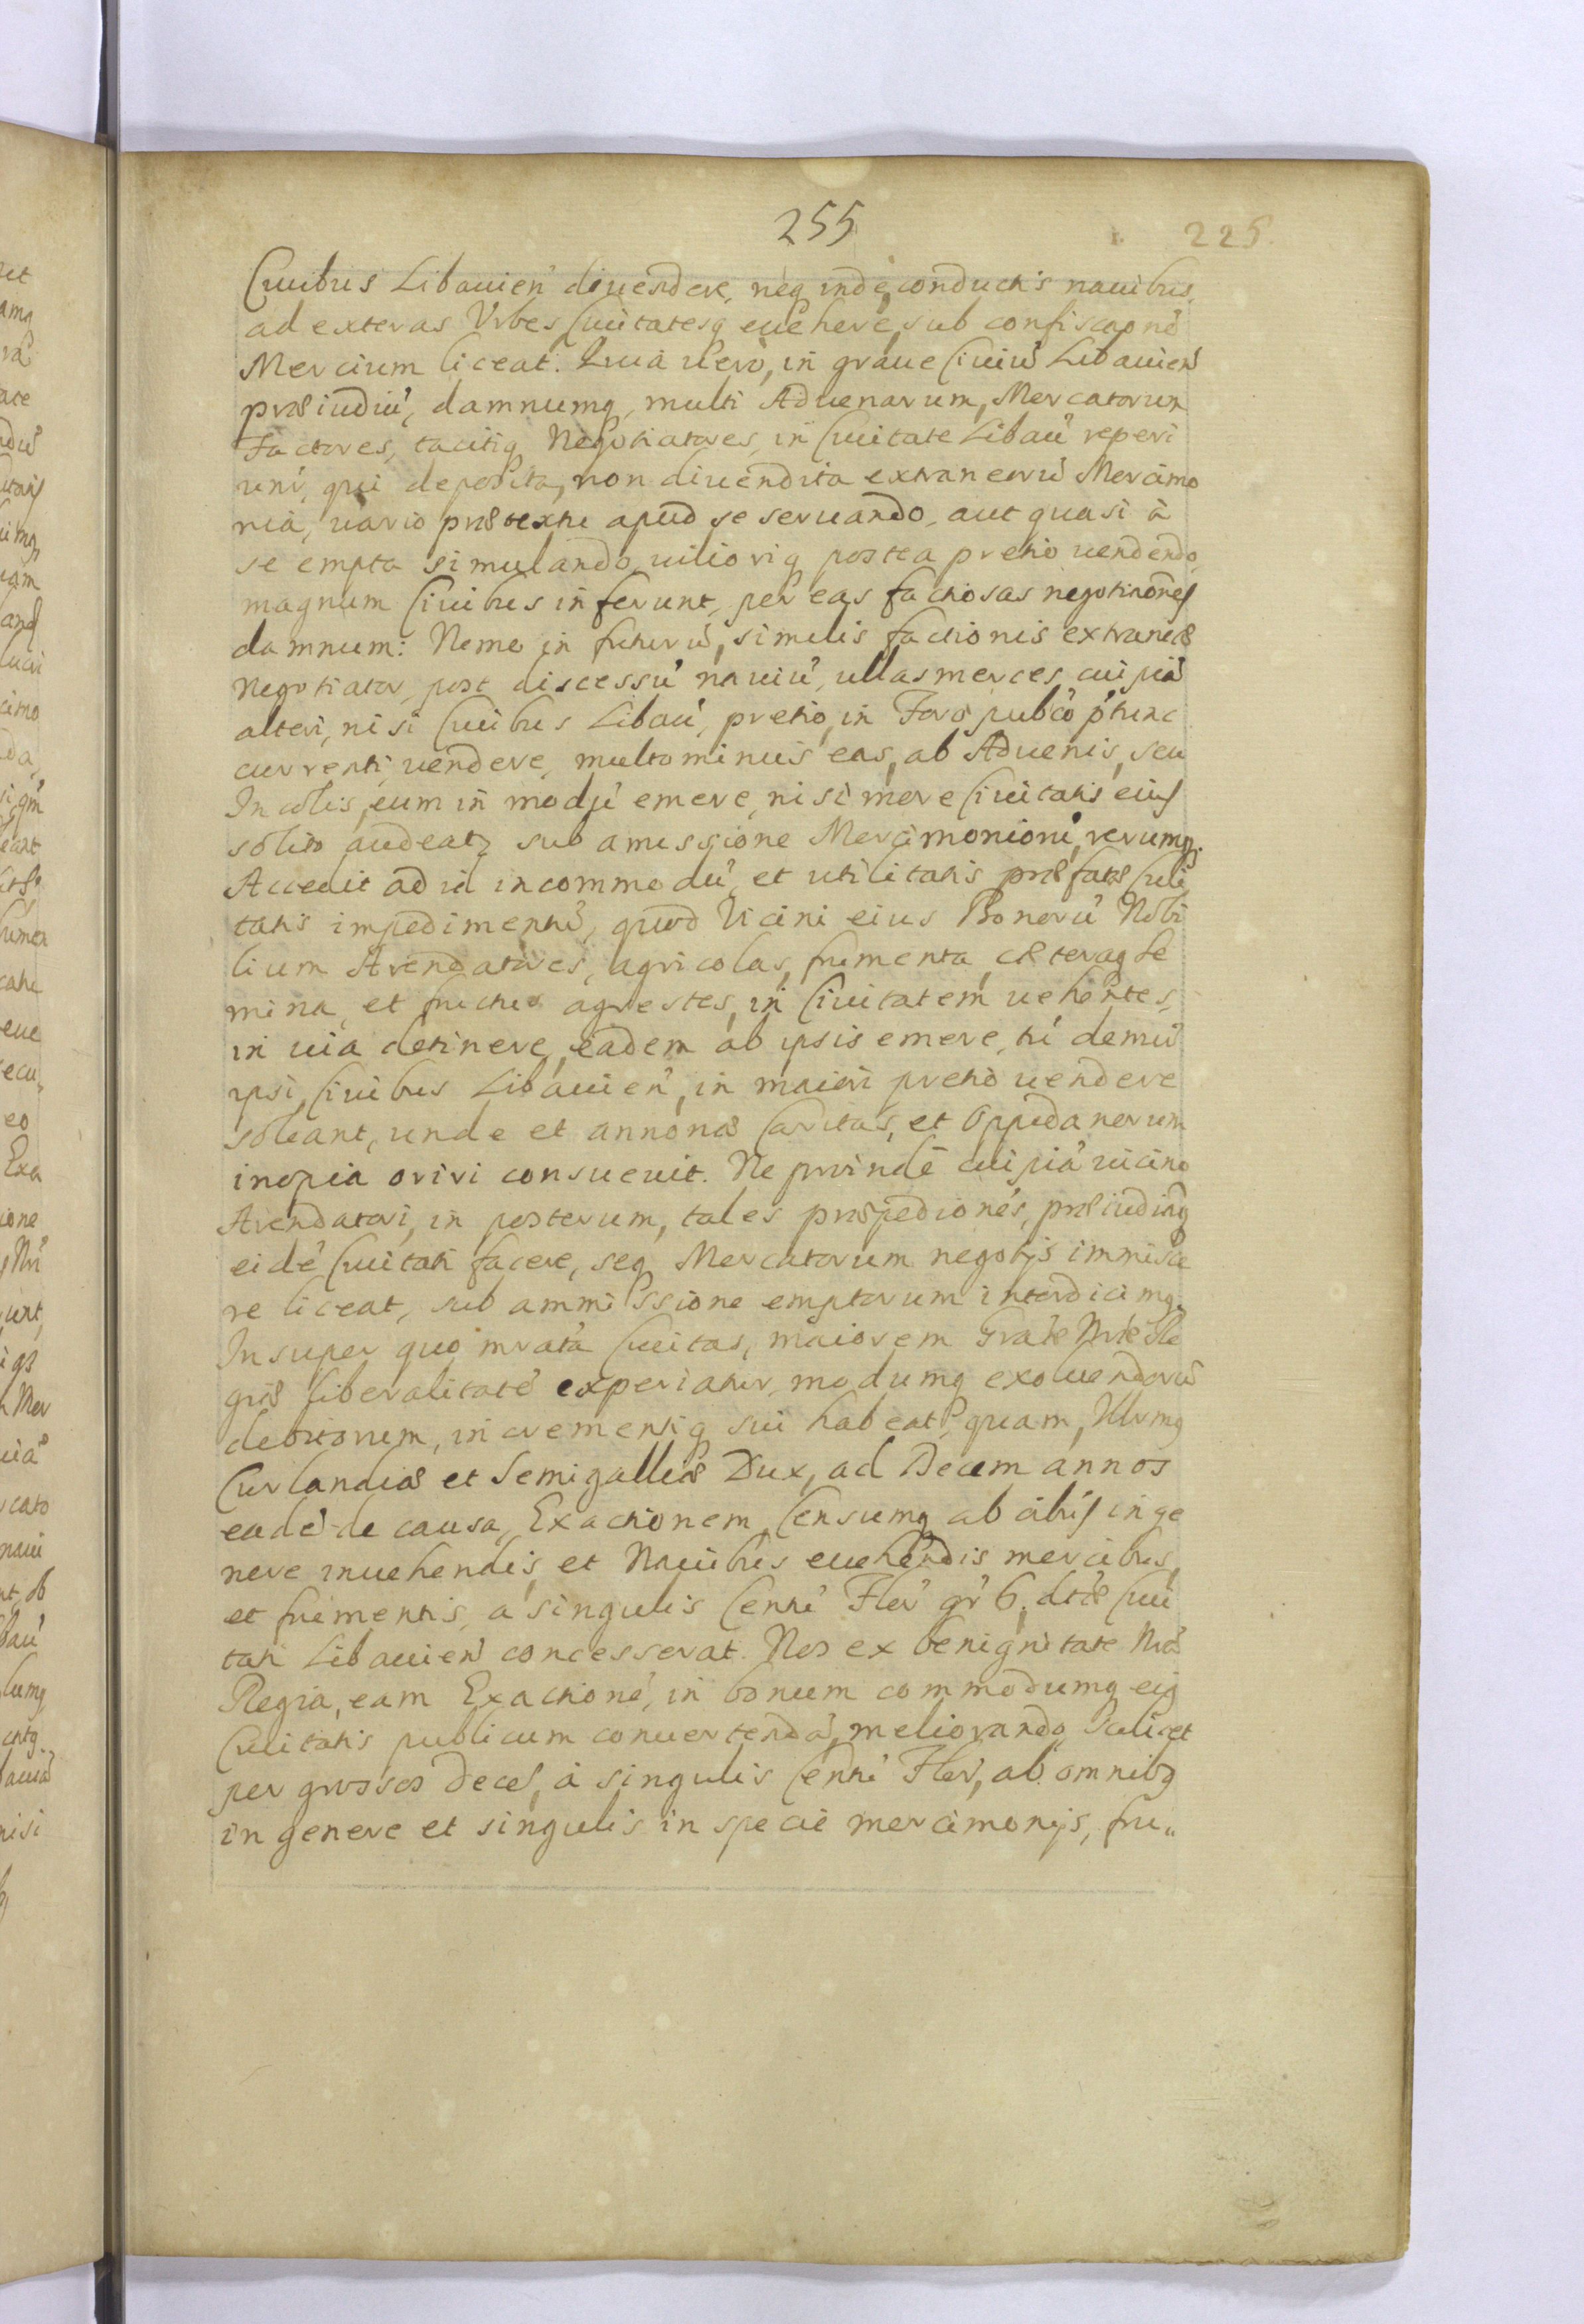 255
225.
Ciuibus Libauien̄ diuendere, neq inde, conductis nauibus,
ad exteras Vrbes Ciuitatesq euehere, sub confiscaōne
Mercium liceat. Quia uero, in graue Ciuiū Libauien̄
præiudiū, damnumq, multi Aduenarum, Mercatorum
Factores, tacitiq Negotiatores, in Ciuitate Libau̇ reperi
unt̄, qui deposita, non diuendita extraneorū Mercimo
nia, uario prætextu apud se seruando, aut quasi à
se empta simulando, uilioriq postea pretio uendendo,
magnum Ciuibus inferunt, per eas factiosas negotiaōnes
damnum: Nemo in futurū, similis factionis extraneæ
Negotiator, post discessū nauiū, ullas merces, cuipiā
alteri, nisi Ciuibus Libau̇, pretio, in Foro pubco p̄tunc
currenti uendere, multo minus eas, ab Aduenis, seu
Incolis, eum in modū emere, nisi more Ciuitatis eius
solito audeat, sub amissione Mercimoniorū, rerumq.
Accedit ad id incommodū, et utilitatis præfatæ Ciui
tatis impedimentū, quod Vicini eius Bonorū Nobi
lium Arendatores, agricolas, frumenta, cæteraq Se
mina, et fructus agrestes, in Ciuitatem uehentes,
in uia detinere, eadem ab ipsis emere, tū demū
ipsi, Ciuibus Libauien̄, in maiori pretio uendere
soleant, unde et annonæ Caritas, et Oppidanorum
inopia oriri consueuit. Ne proinde cuipiā uicino
Arendatori, in posterum, tales præpediōnes, præiudiaq
eidē Ciuitati facere, seq Mercatorum negotijs immisce
re liceat, sub ammissione emptorum interdicimq.
Insuper quo mrata Ciuitas, maiorem Gratæ Nræ Re
giæ liberalitatē experiatur, modumq exoluendorū
debitorum, incrementiq sui habeat, quam, Illrmq
Curlandiæ et Semigalliæ Dux, ad Decem annos
eadē de causa, Exactionem, Censumq ab alijs in ge
nere inuehendis, et Nauibus euehendis mercibus,
et frumentis, a singulis Centū Fler̄ gr̄ 6. dtæ Ciui
tati Libauien̄ concesserat. Nos ex benignitate Nra
Regia, eam Exactionē, in bonum commodumq eiq
Ciuitatis publicum conuertendā, meliorando, Scilicet
per grossos decē, à singulis Centū Fler̄, ab omnibq
in genere et singulis in specie mercimonijs, fru„